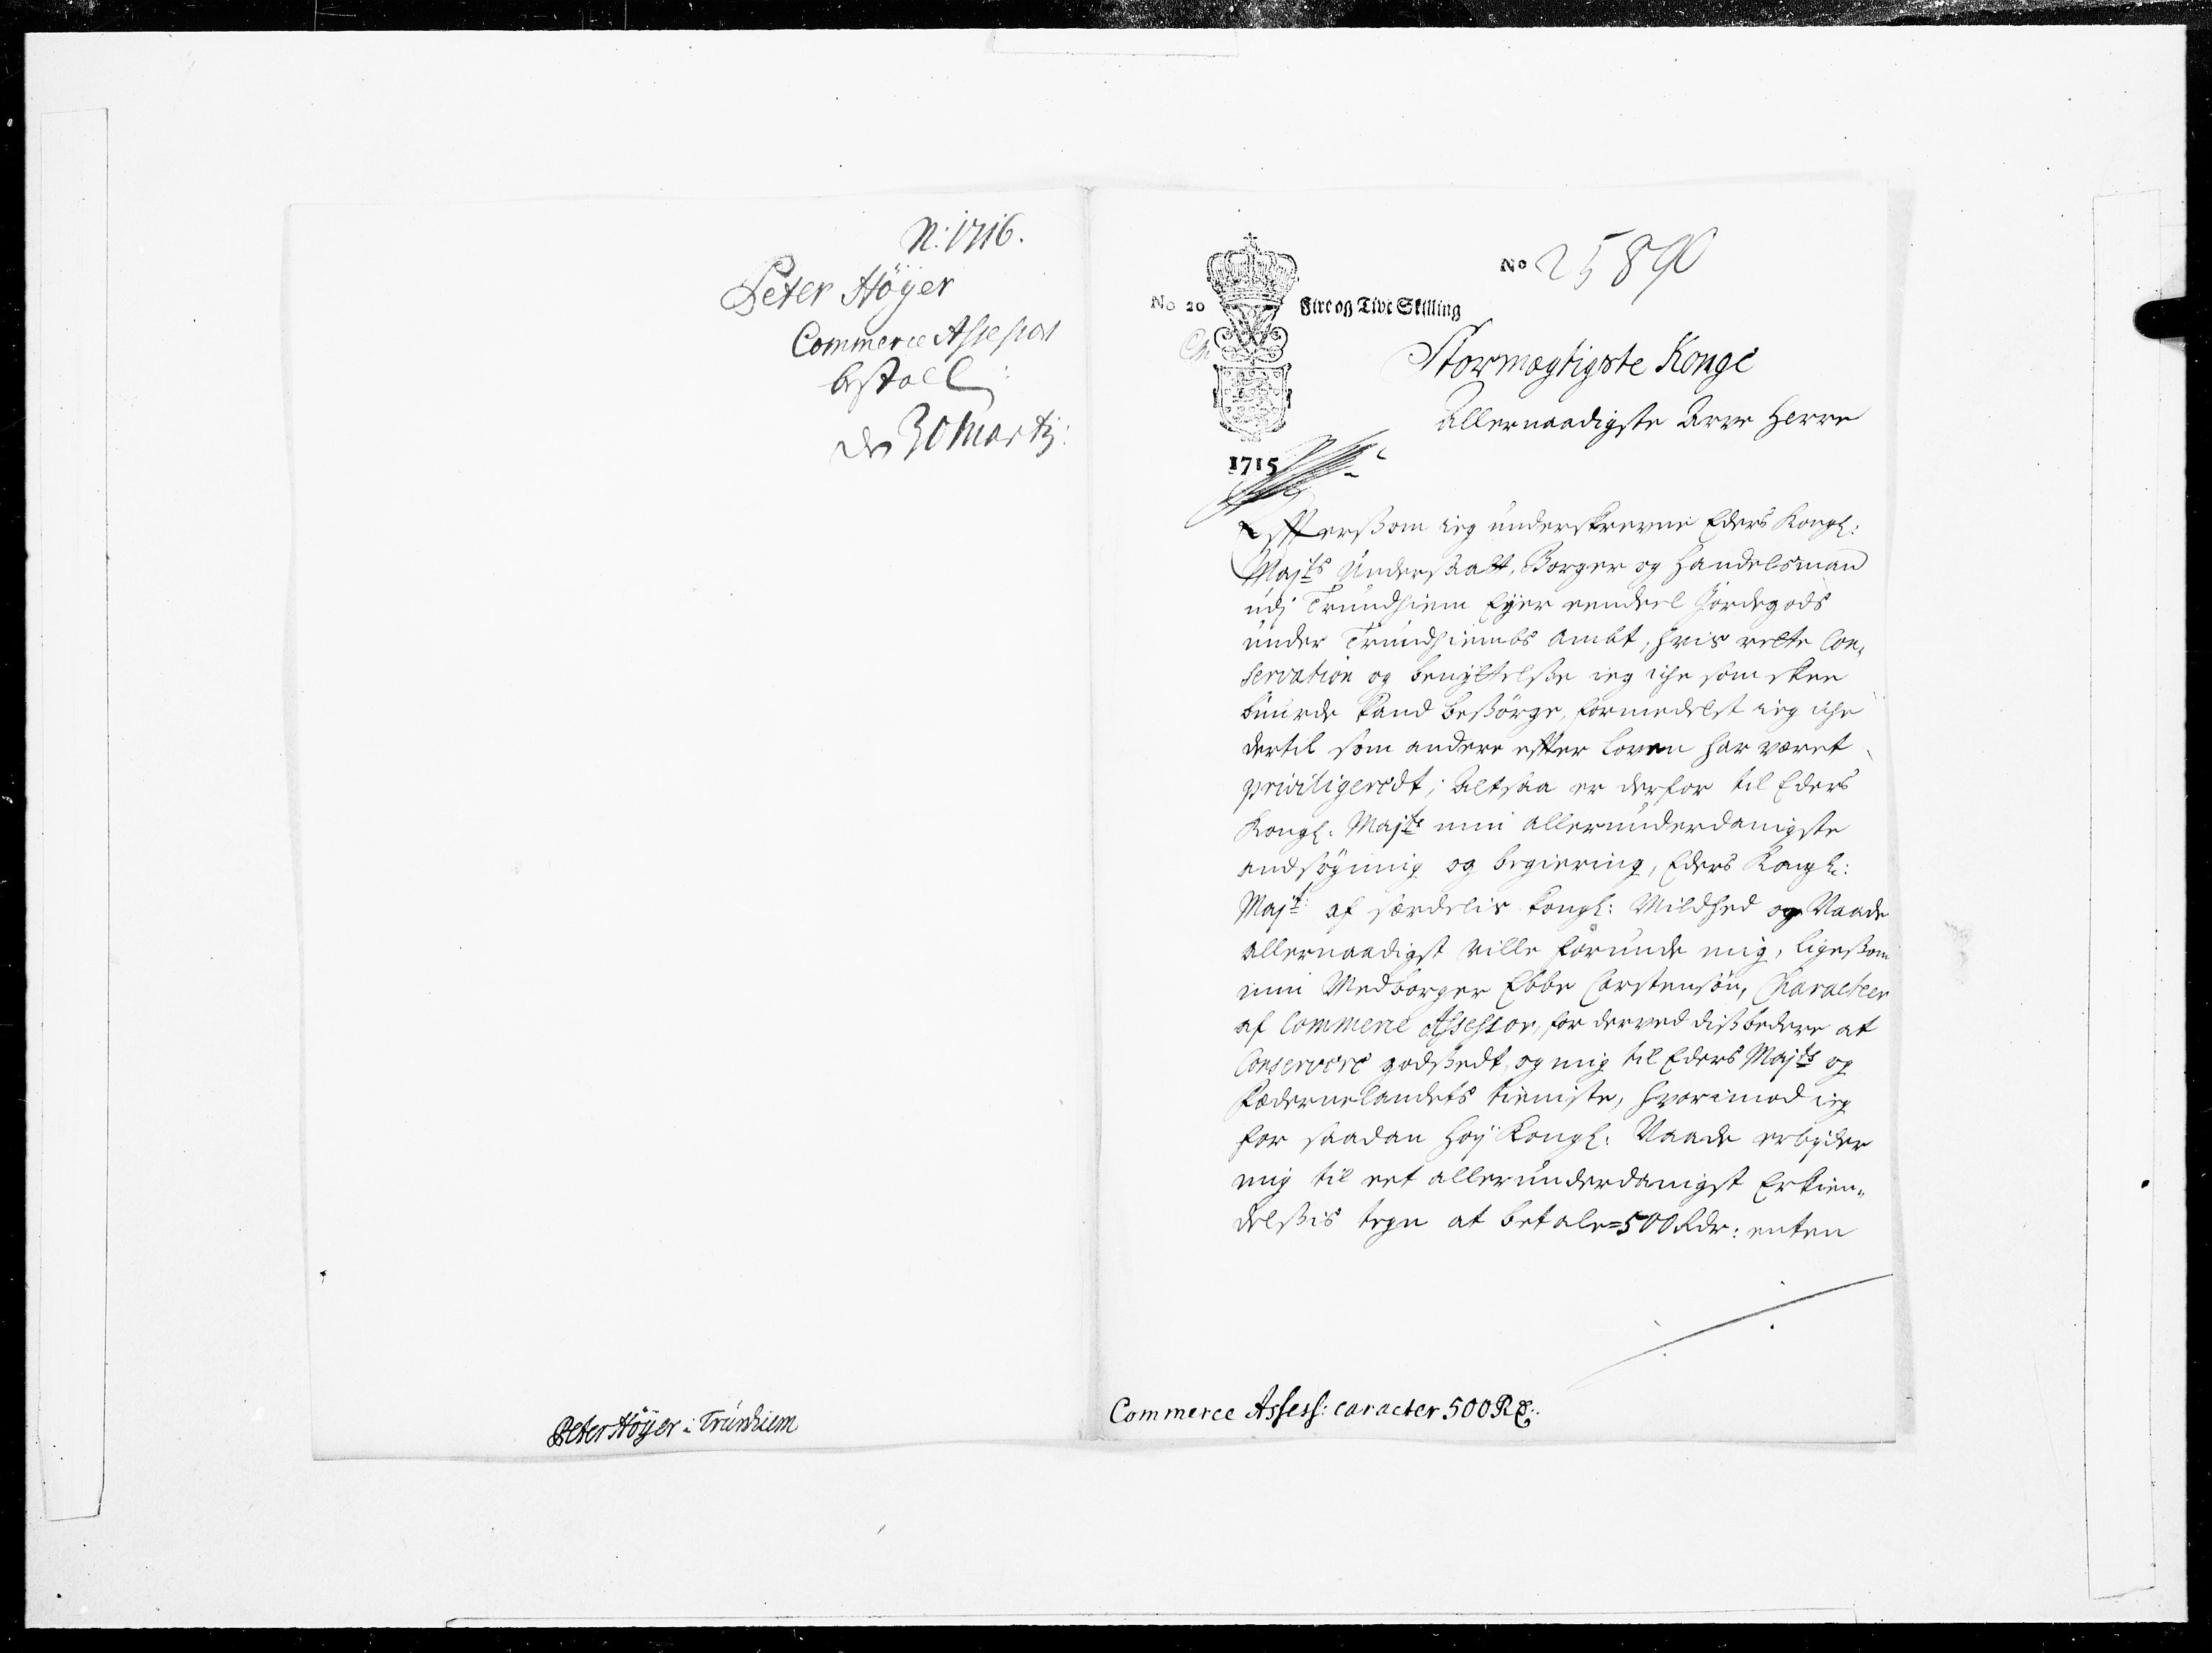 N: 1716.
Peter Höyer
Commerce Assessor
bestall:
den 30 Martij:
Peter Höyer i Trundhiem
No 2589
No 20 Fire og Tive Skilling
Stormægtigste Konge
Allernaadigste Arve Herre
1715
Effterssom ieg underskrevne Eders Kongl:
Majts Undersaatt, Borger og Handelsmand
udj Trundhiem Eyer eendeel Jordegods
under Trundhiembs Ambt, hvis rette Con,
servation og benyttelsse ieg iche som skee
buurde kand bessörge, formedelst ieg iche
dertil som andere effter loven har været
priviligeredt; Altsaa er derfor til Eders
Kongl: Majts min allerunderdanigste
andsögning og begiering, Eders Kongl:
Majt: af særdelis kongl: Mildhed og Naade
allernaadigst ville forunde mig, ligessom
min Medborger Ebbe Carstensön, Characteer
af Commerce Assessor, for derved dissbedere at
Conservere godssedt, og mig til Eders Majts og
Fædernelandets tieniste, hvorimod ieg
for saadan höy Kongl: Naade erbyder
mig til eet allerunderdanigst Erkien,,
delssis tegn at betale = 500 Rdr: enten
Commerce Assess: caracter 500 Rd: